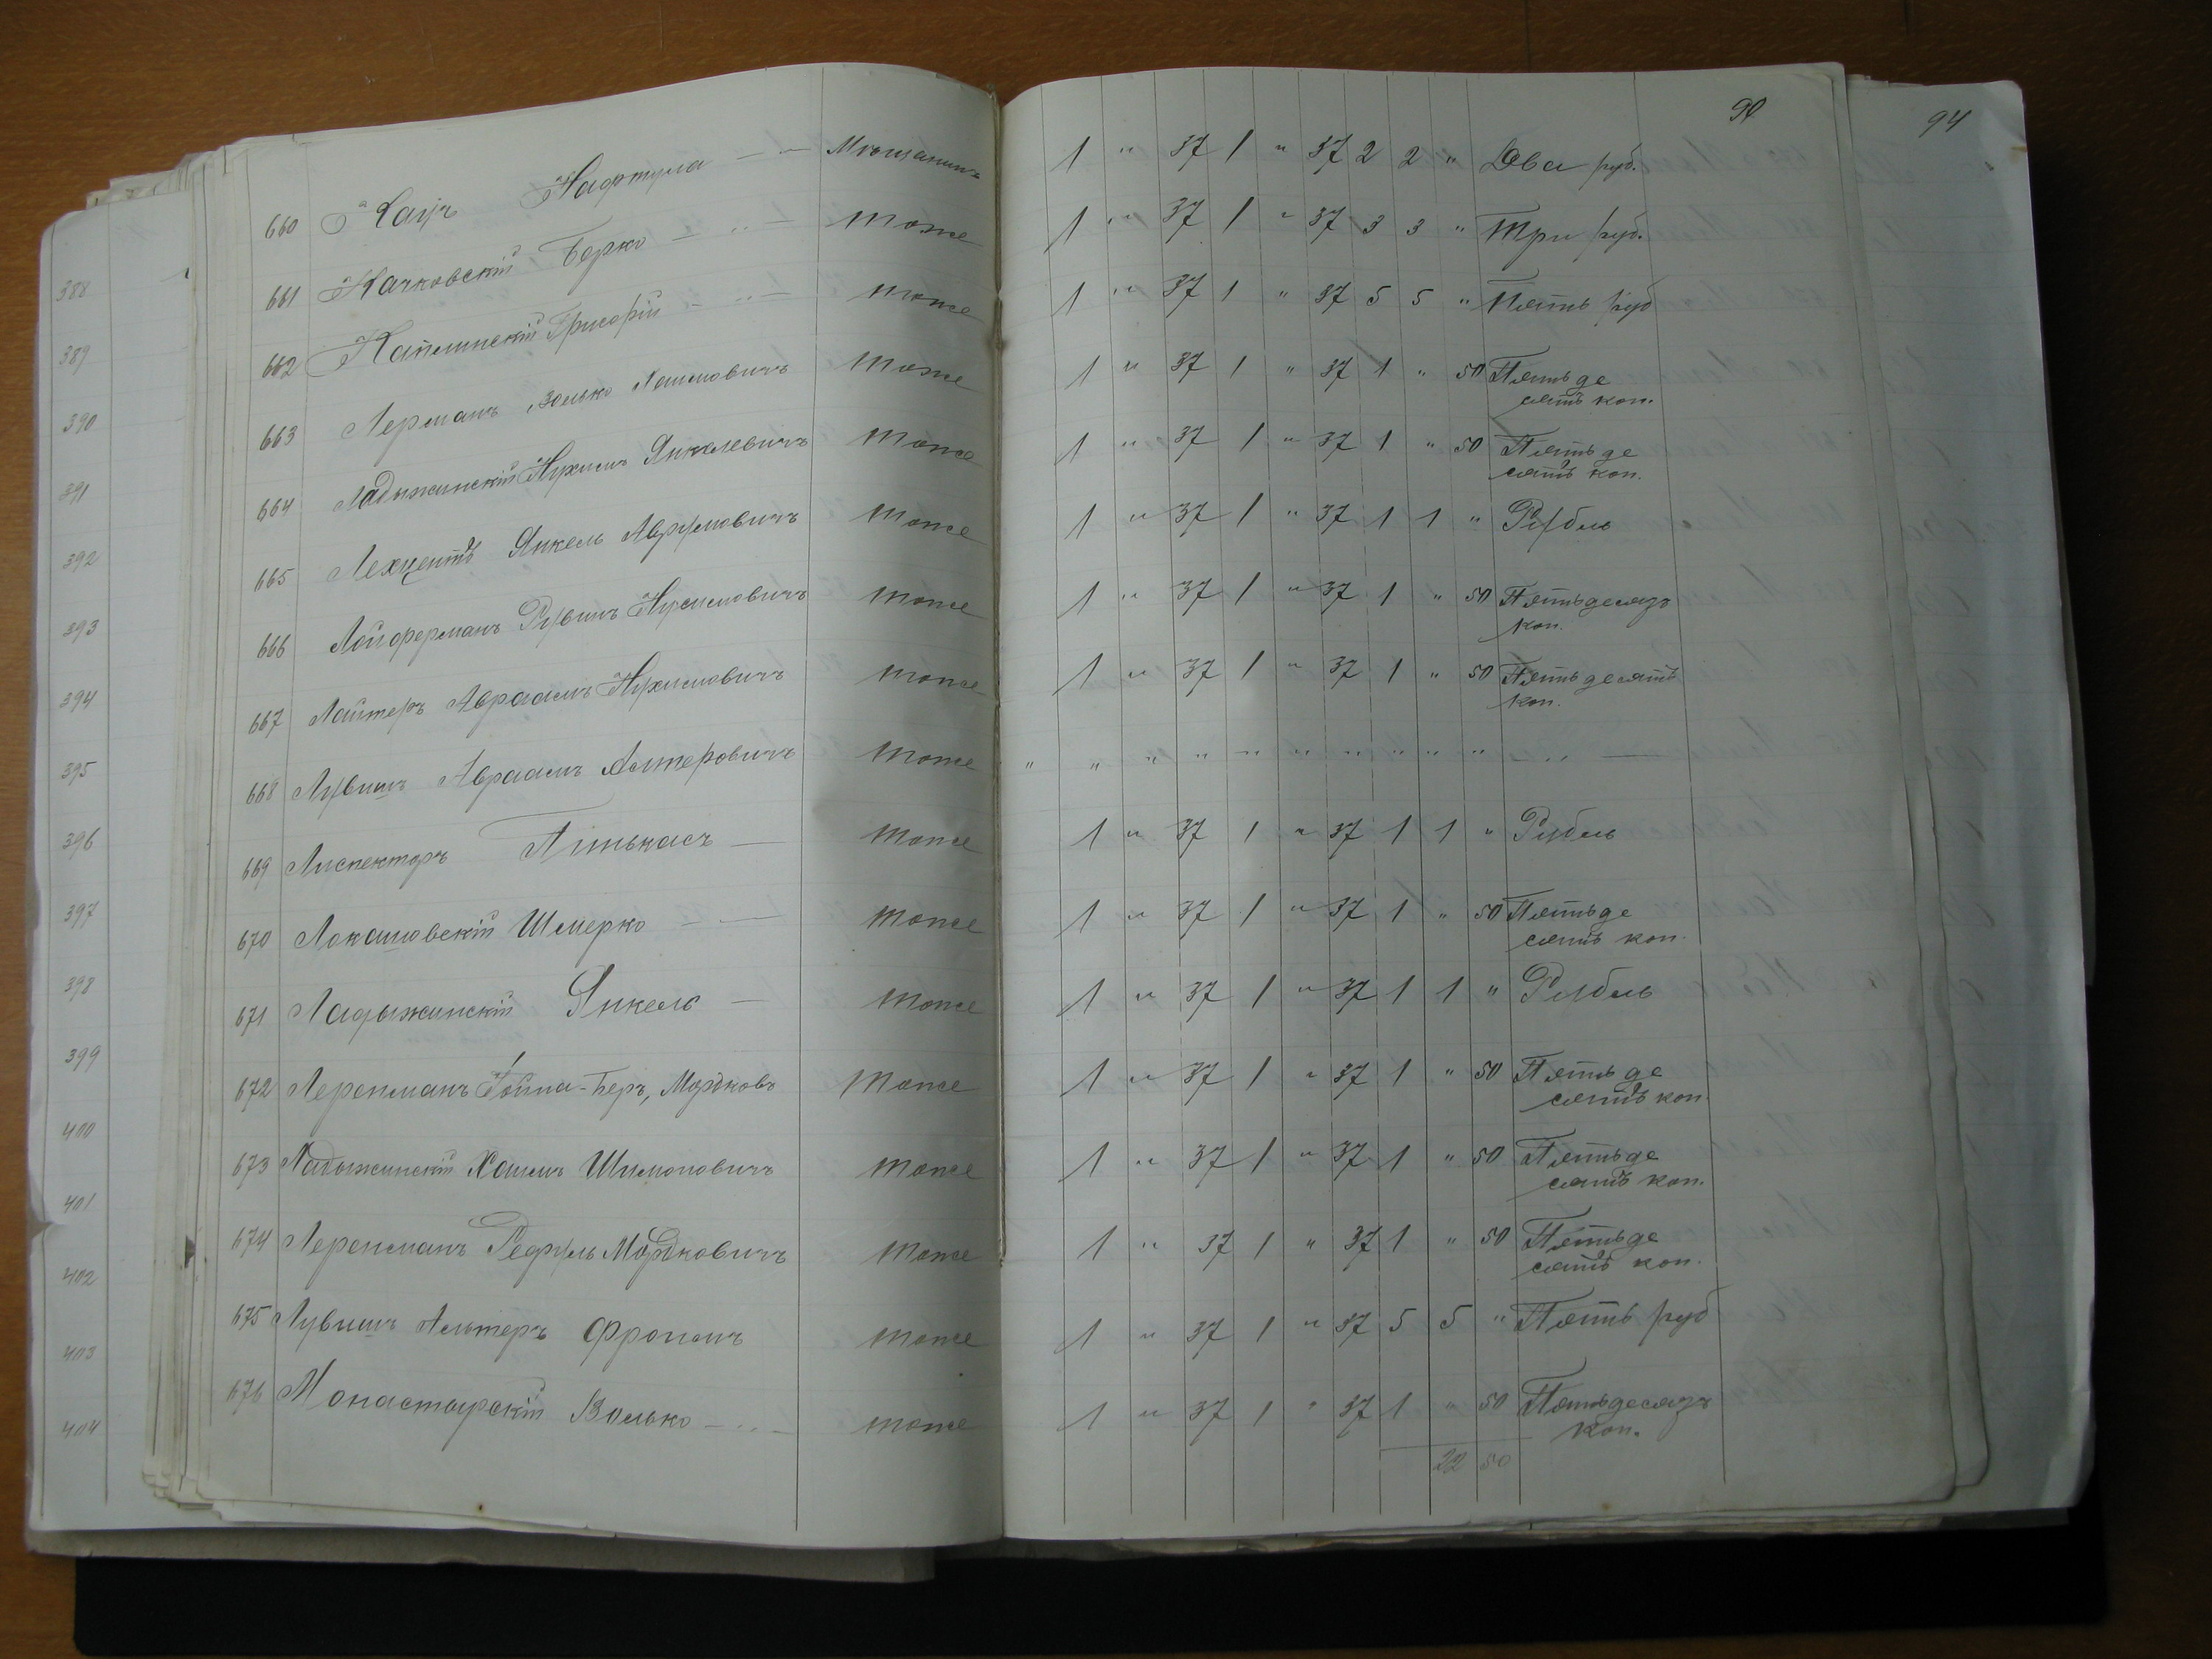 90
94
660 Кацъ Нафтула — — Мѣщанинъ 1 " 37 1 " 37 2 2 " Два руб.
661 Качковскій Берко — " — тоже 1 " 37 1 " 37 3 3 " Три руб.
662 Каплинскій Григорій — " — тоже 1 " 37 1 " 37 5 5 " Пять руб
663 Лерманъ Волько Хаимовичъ тоже 1 " 37 1 " 37 1 " 50 Пятьде
сятъ коп.
664 Ладыжинскій Нухимъ Янкелевичъ тоже 1 " 37 1 " 37 1 " 50 Пятьде
сятъ коп.
665 Лехцентъ Янкель Аврумовичъ тоже 1 " 37 1 " 37 1 1 " Рубль
666 Лойферманъ Рувинъ Нухимовичъ тоже 1 " 37 1 " 37 1 " 50 Пятьдесятъ
коп.
667 Лайтеръ Авраамъ Нухимовичъ тоже 1 " 37 1 " 37 1 " 50 Пятьдесятъ
коп.
668 Лувишъ Авраамъ Алтеровичъ тоже " " " " " " " " " " " —
669 Лиспекторъ Пинькасъ — тоже 1 " 37 1 " 37 1 1 " Рубль
670 Локашовскій Шмерко — — тоже 1 " 37 1 " 37 1 " 50 Пятьде
сятъ коп.
671 Ладыжинскій Янкель — тоже 1 " 37 1 " 37 1 1 " Рубль
672 Леренманъ -Беръ, Мордковъ тоже 1 " 37 1 " 37 1 " 50 Пятьде
сятъ коп.
673 Ладыжинскій Хаимъ Шимоновичъ тоже 1 " 37 1 " 37 1 " 50 Пятьде
сятъ коп.
674 Леренманъ Мордковичъ тоже 1 " 37 1 " 37 1 " 50 Пятьде
сятъ коп.
675 Лувишъ Альтеръ Фроимъ тоже 1 " 37 1 " 37 5 5 " Пять руб
676 Монастырскій Волько — " — тоже 1 " 37 1 " 37 1 " 50 Пятьдесятъ
коп.
22 50
388
389
390
391
392
393
394
395
396
397
398
399
400
401
402
403
404